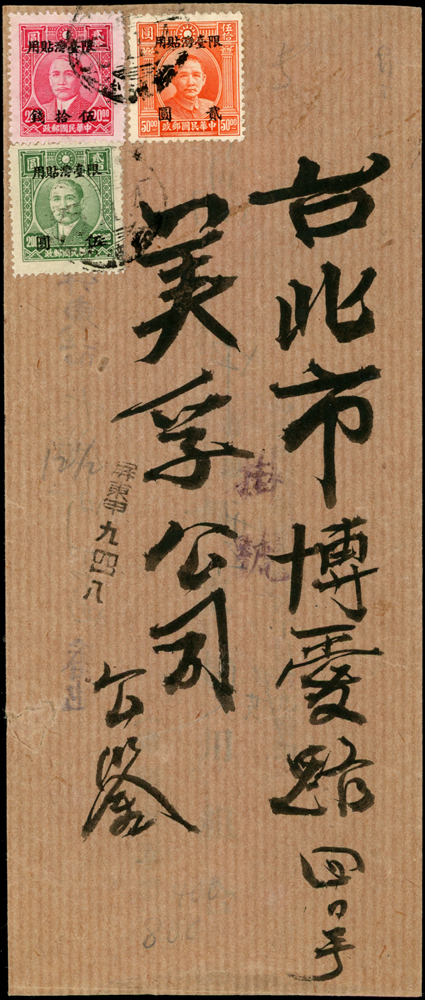 限臺灣貼用
伍拾錢
中華民國郵政
限臺灣貼用
貳圓
50.00
50.00
中華民國郵政
限臺灣貼用
伍圓
中華民國郵政
台北市博愛路四
美孚公司
公鑒
掛號
屏東甲九四八
12 1/2